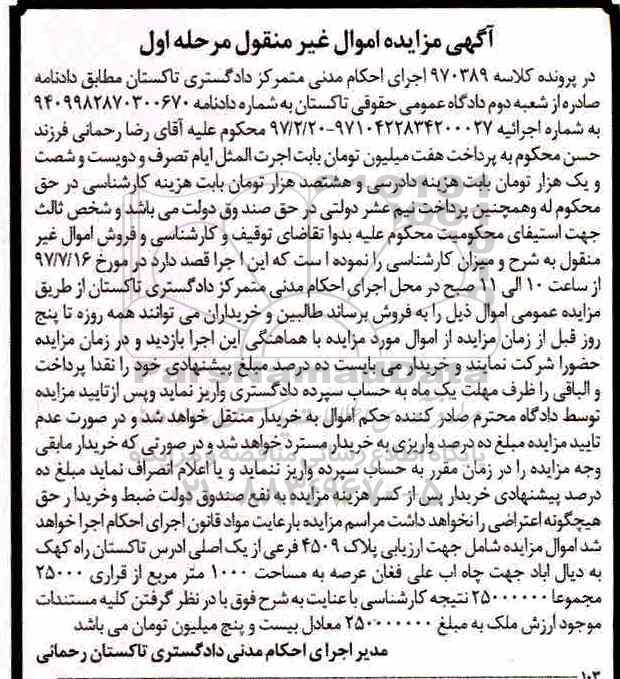 آگهی مزایده اموال غیر منقول مرحله اول
در پرونده کلاسه ۹۷۰۳۸۹ اجرای احکام مدنی متمرکز دادگستری تاکستان مطابق دادنامه
صادره از شعبه دوم دادگاه عمومی حقوقی تاکستان به شماره دادنامه ۹۴۰۹۹۸۲۸۷۰۳۰۰۶۷۰
به شماره اجرائیه ۹۷۱۰۴۲۲۸۳۴۲۰۰۰۲۷-۹۷/۲/۲۰ محکوم علیه آقای رضا رحمانی فرزند
حسن محکوم به پرداخت هفت میلیون تومان بابت اجرت المثل ایام تصرف و دویست و شصت
و یک هزار تومان بابت هزینه دادرسی و هشتصد هزار تومان بابت هزینه کارشناسی در حق
محکوم له وهمچنین پرداخت نیم عشر دولتی در حق صند وق دولت می باشد و شخص ثالث
جهت استیفای محکومیت محکوم علیه بدوا تقاضای توقیف و کارشناسی و فروش اموال غیر
منقول به شرح و میزان کارشناسی را نموده ا ست که این ا جرا قصد دارد در مورخ ۹۷/۷/۱۶
از ساعت ۱۰ الی ۱۱ صبح در محل اجرای احکام مدنی متمرکز دادگستری تاکستان از طریق
مزایده عمومی اموال ذیل را به فروش برساند طالبین و خریداران می توانند همه روزه تا پنج
روز قبل از زمان مزایده از اموال مورد مزایده با هماهنگی این اجرا بازدید و در زمان مزایده
حضورا شرکت نمایند و خریدار می بایست ده درصد مبلغ پیشنهادی خود را نقدا پرداخت
و الباقی را ظرف مهلت یک ماه به حساب سپرده دادگستری واریز نماید وپس ازتایید مزایده
توسط دادگاه محترم صادر کننده حکم اموال به خریدار منتقل خواهد شد و در صورت عدم
تایید مزایده مبلغ ده درصد واریزی به خریدار مسترد خواهد شد و در صورتی که خریدار مابقی
وجه مزایده را در زمان مقرر به حساب سپرده واریز ننماید و یا اعلام انصراف نماید مبلغ ده
درصد پیشنهادی خریدار پس از کسر هزینه مزایده به نفع صندوق دولت ضبط وخریدا ر حق
هیچگونه اعتراضی را نخواهد داشت مراسم مزایده بارعایت مواد قانون اجرای احکام اجرا خواهد
شد اموال مزایده شامل جهت ارزیابی پلاک ۴۵۰۹ فرعی از یک اصلی ادرس تاکستان راه کهک
به دیال اباد جهت چاه اب علی فغان عرصه به مساحت ۱۰۰۰ متر مربع از قراری ۲۵۰۰۰
مجموعا ۲۵۰۰۰۰۰۰ نتیجه کارشناسی با عنایت به شرح فوق با در نظر گرفتن کلیه مستندات
موجود ارزش ملک به مبلغ ۲۵۰۰۰۰۰۰۰ معادل بیست و پنج میلیون تومان می باشد
مدیر اجرای احکام مدنی دادگستری تاکستان رحمانی
۱۰۳